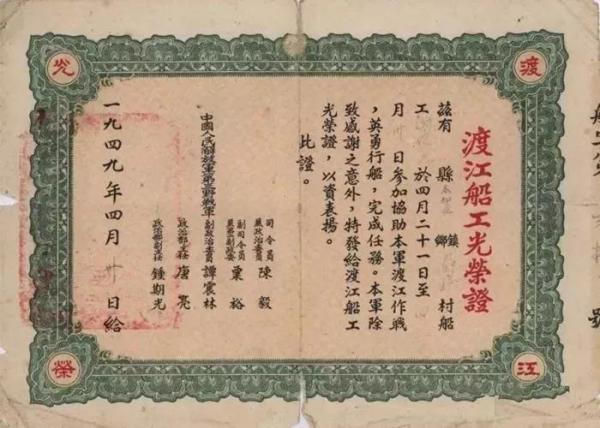 渡
江
光
榮
號
渡江船工光榮證
茲有 縣 鎮鄉 村船
工 於四月二十一日至
月 日參加協助本軍渡江作戰
,英勇行船,完成任務。本軍除
致感謝之意外,特發給渡江船工
光榮證,以資表揚。
此證。
中國人民解放軍第三野戰軍
司令員兼政治委員 陳毅
副司令員兼第二副政委 粟裕
副政治委員 譚震林
政治部主任 唐亮
政治部副主任 鍾期光
一九四九年四月廿日給